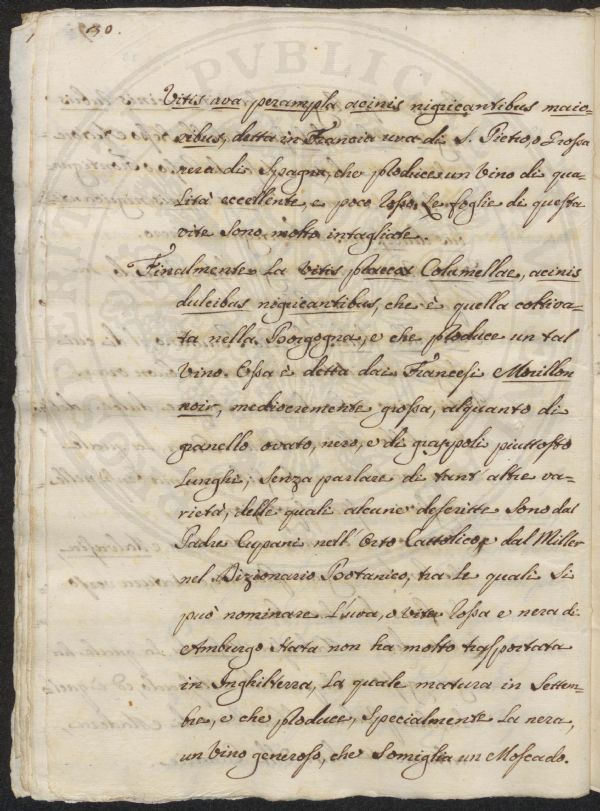 30.
Vitis uva perampla acinis nigricantibus maio-
ribus, detta in Francia uva di S. Pietro, o Grossa
nera di Spagna, che produce un Vino di qua-
lità eccellente, e poco Rosso. Le foglie di questa
vite sono molto intagliate.
Finalmente la Vitis praecox Columellae, acinis
dulcibus nigricantibus, che è quella coltiva-
ta nella Borgogna, e che produce un tal
Vino. Essa è detta dai Francesi Morillon
noir, mediocremente grossa, alquanto di
granello ovato, nero, e di grappoli piuttosto
lunghi; senza parlare di tant' altre va-
rietà, delle quali alcune descritte sono dal
Padre Cupani nell' Orto Cattolico, e dal Miller
nel Dizionario Botanico, tra le quali si
può nominare l'uva, o vite rossa e nera di
Amburgo stata non ha molto trasportata
in Inghilterra, la quale matura in Settem-
bre, e che produce, specialmente la nera,
un Vino generoso, che somiglia un Moscado.
PVBLIC